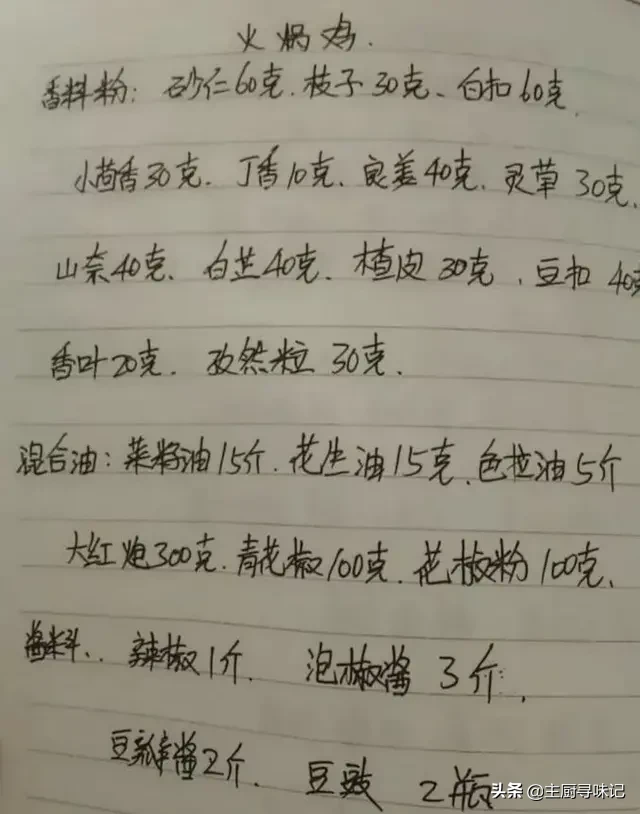 火锅鸡.
香料粉：砂仁60克、枝子30克、白扣60克
小茴香30克、丁香10克、良姜40克、灵草30克、
山奈40克、白芷40克、楂皮30克、豆扣40克
香叶20克、孜然粒30克、
混合油：菜籽油15斤、花生油15克、色拉油5斤
大红炮300克、青花椒100克、花椒粉100克、
酱料、辣椒1斤、泡椒酱3斤、
豆瓣酱2斤、豆豉2瓶
头条 @主厨寻味记